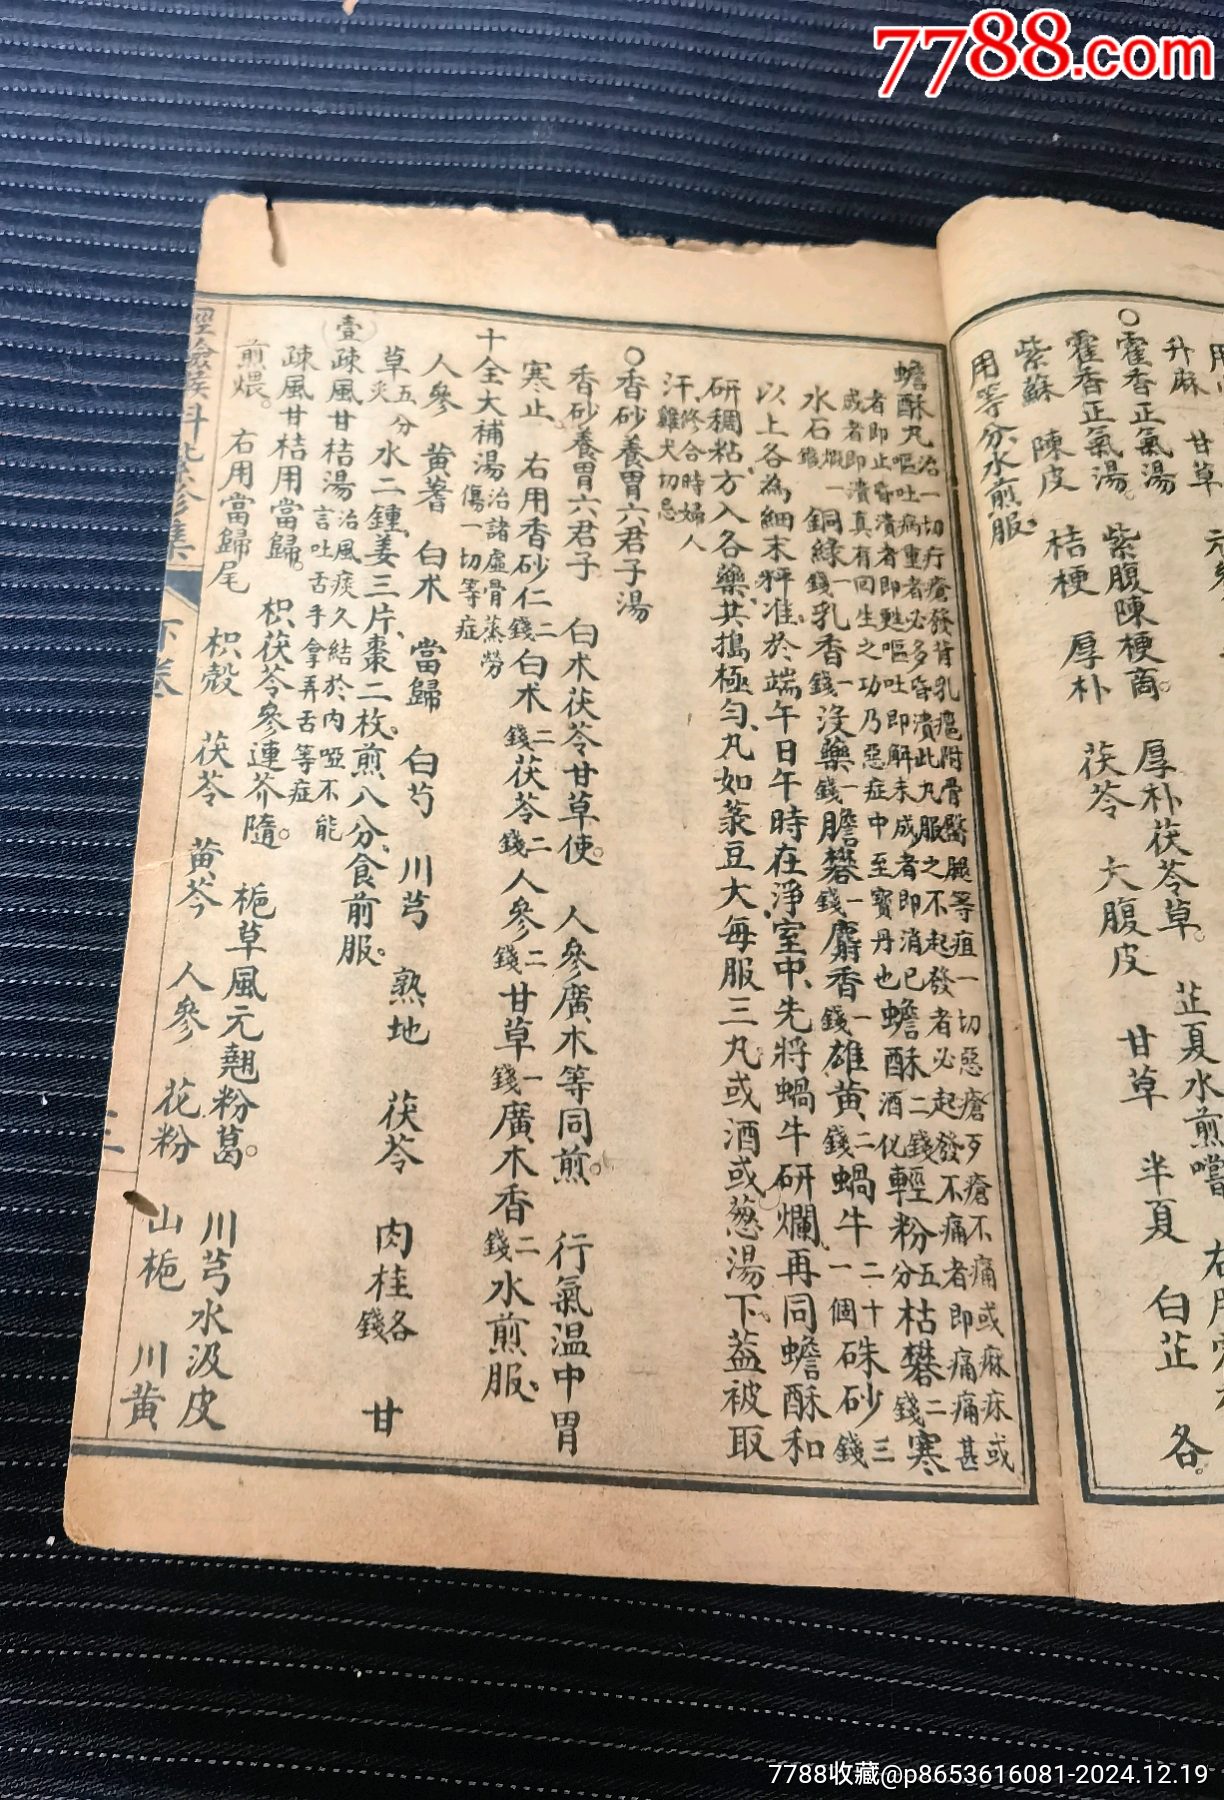 7788.com
升麻　甘草
○霍香正氣湯　紫腹陳梗商。　厚朴茯苓草。　芷夏水煎嚐
霍香正氣湯　桔梗　厚朴　茯苓　大腹皮　甘草　半夏　白芷　各
紫蘇　陳皮
用等分、水煎服、
蟾酥丸治一切疔瘡發背乳癰附骨臀腿等疽一切惡瘡歹瘡不痛或麻痳或
嘔吐病重者必多昏潰此丸服之不起發者必起發不痛者即痛痛甚
者即止昏潰者即甦嘔吐即解未成者即消已
或者即潰真有回生之功乃惡症中至寶丹也蟾酥酒化二錢輕粉五分枯礬二錢寒
水石煆一錢銅綠一錢乳香一錢沒藥一錢膽礬一錢麝香一錢雄黄二錢蝸牛二十一個硃砂三錢
以上各為細末秤准、於端午日午時在淨室中、先將蝸牛研爛再同蟾酥和
研稠粘、方入各藥、共搗極勻、丸如菉豆大每服三丸、或酒或葱湯下。蓋被取
汗、修合時婦人雞犬切忌
○香砂養胃六君子湯
香砂養胃六君子　白朮茯苓甘草使。　人參廣木等同煎。　行氣溫中胃
寒止、　右用香砂仁二錢白朮二錢茯苓二錢人參二錢甘草一錢廣木香二錢水煎服、
十全大補湯治諸虛骨蒸勞傷一切等症
人參　黄蓍　白朮　當歸　白芍　川芎　熟地　茯苓　肉桂各錢　甘
草五分灸水二鍾、姜三片、棗二枚。煎八分、食前服。
壹疎風甘桔湯治風痰久結於內啞不能言吐舌手拿弄舌等症
疎風甘桔用當歸。　枳茯苓參連芥隨。　梔草風元翹粉葛。　川芎水汲皮
煎煨。　右用當歸尾　枳殼　茯苓　黄芩　人參　花粉　山梔　川黄
下卷
7788收藏@p8653616081-2024.12.19